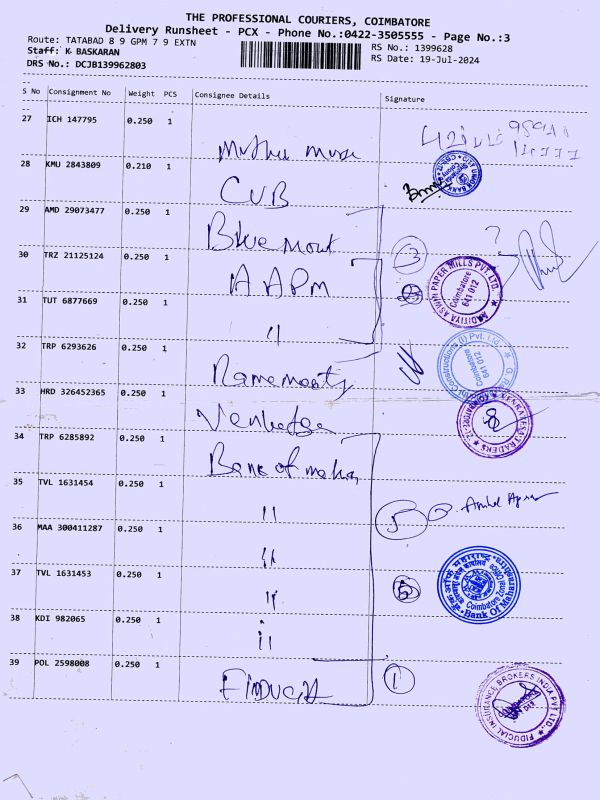 THE PROFESSIONAL COURIERS, COIMBATORE
Delivery Runsheet - PCX - Phone No.:0422-3505555 - Page No.:3
Route: TATABAD 8 9 GPM 7 9 EXTN
RS No.: 1399628
Staff: K BASKARAN
RS Date: 19-Jul-2024
DRS No.: DCJB139962803
S No Consignment No Weight PCS Consignee Details Signature
27 ICH 147795 0.250 1
28 KMU 2843809 0.210 1 CUB
29 AMD 29073477 0.250 1 Blue mount
30 TRZ 21125124 0.250 1 AAPM
3
AADITIYA ASWIN PAPER MILLS PVT. LTD.
Coimbatore
641 012
31 TUT 6877669 0.250 1 "
32 TRP 6293626 0.250 1
Constructions (I) Pvt. Ltd.
Coimbatore
641 012
33 HRD 326452365 0.250 1
34 TRP 6285892 0.250 1 Bank of maha
35 TVL 1631454 0.250 1 "
5
36 MAA 300411287 0.250 1 "
37 TVL 1631453 0.250 1 "
5
Coimbatore Zonal Office
Bank Of Maharashtra
38 KDI 982065 0.250 1 "
39 POL 2598008 0.250 1 FIDUCIA
1
FIDUCIAL INSURANCE BROKERS INDIA PVT LTD.